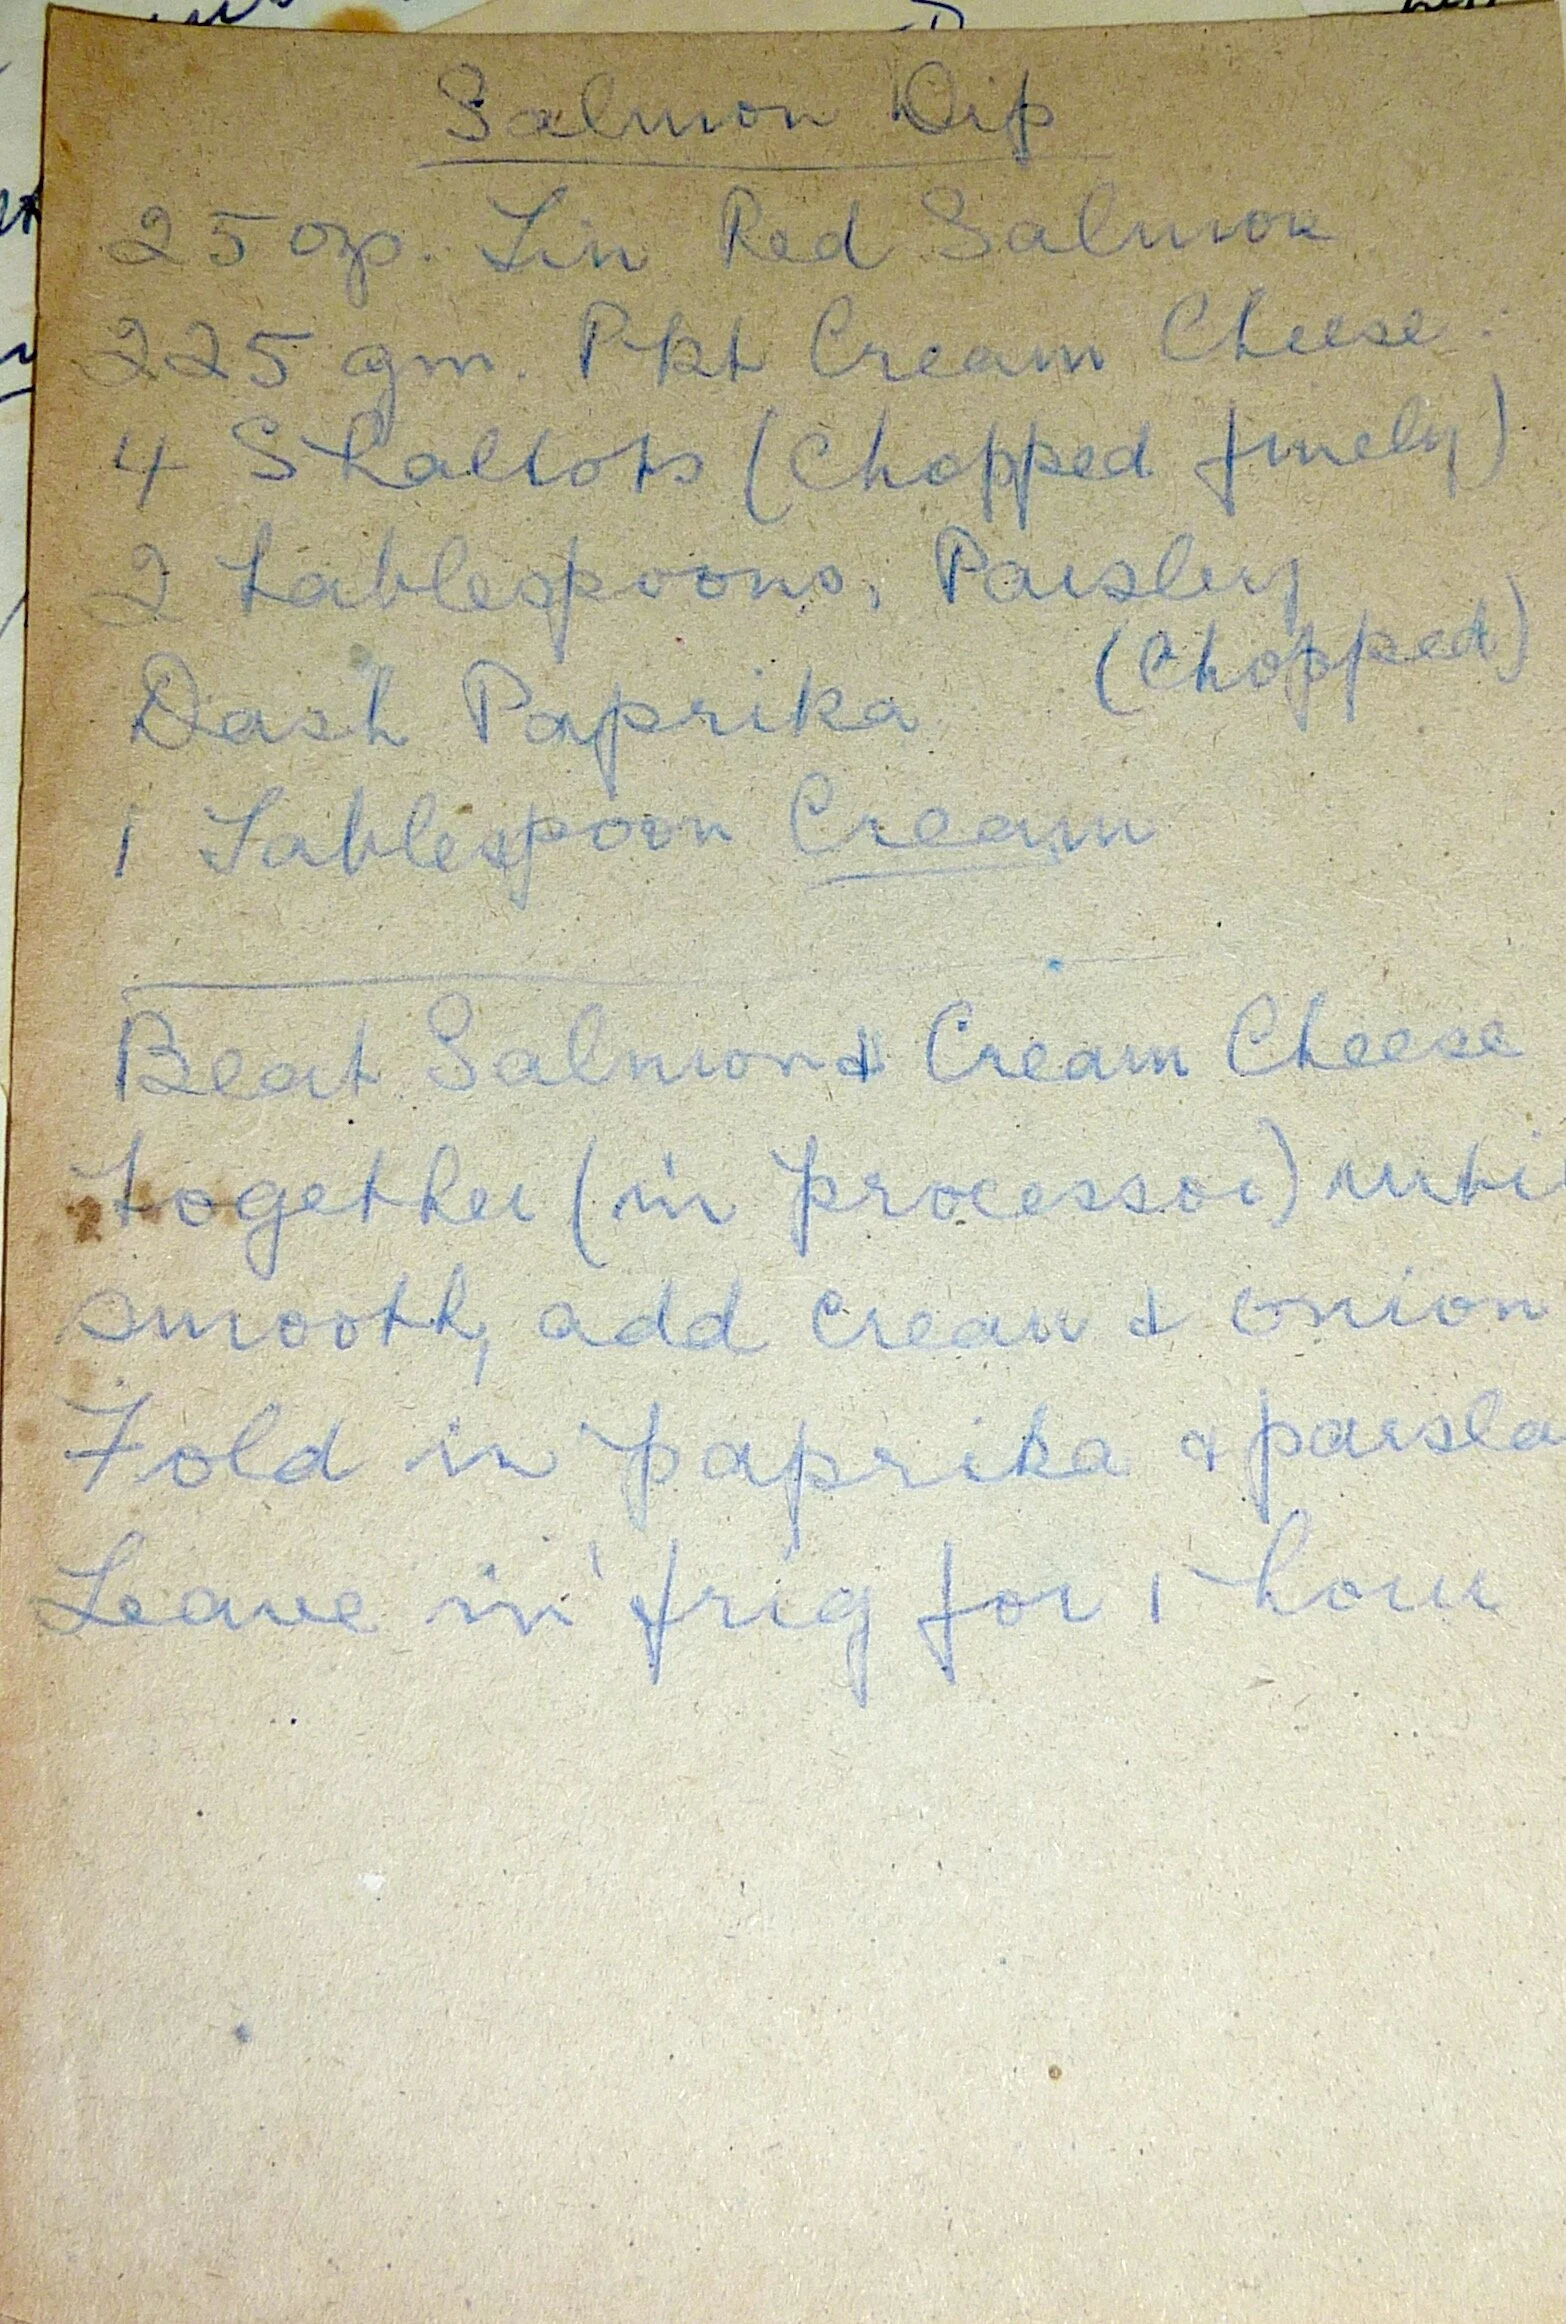 Salmon Dip
25 oz. Tin Red Salmon
225 gm. Pkt Cream Cheese.
4 Shallots (Chopped finely)
2 tablespoons, Parsley
(Chopped)
Dash Paprika
1 Tablespoon Cream
Beat Salmon & Cream Cheese
together (in processor) unti
smooth, add cream & onion
Fold in paprika & parsle
Leave in frig for 1 hour